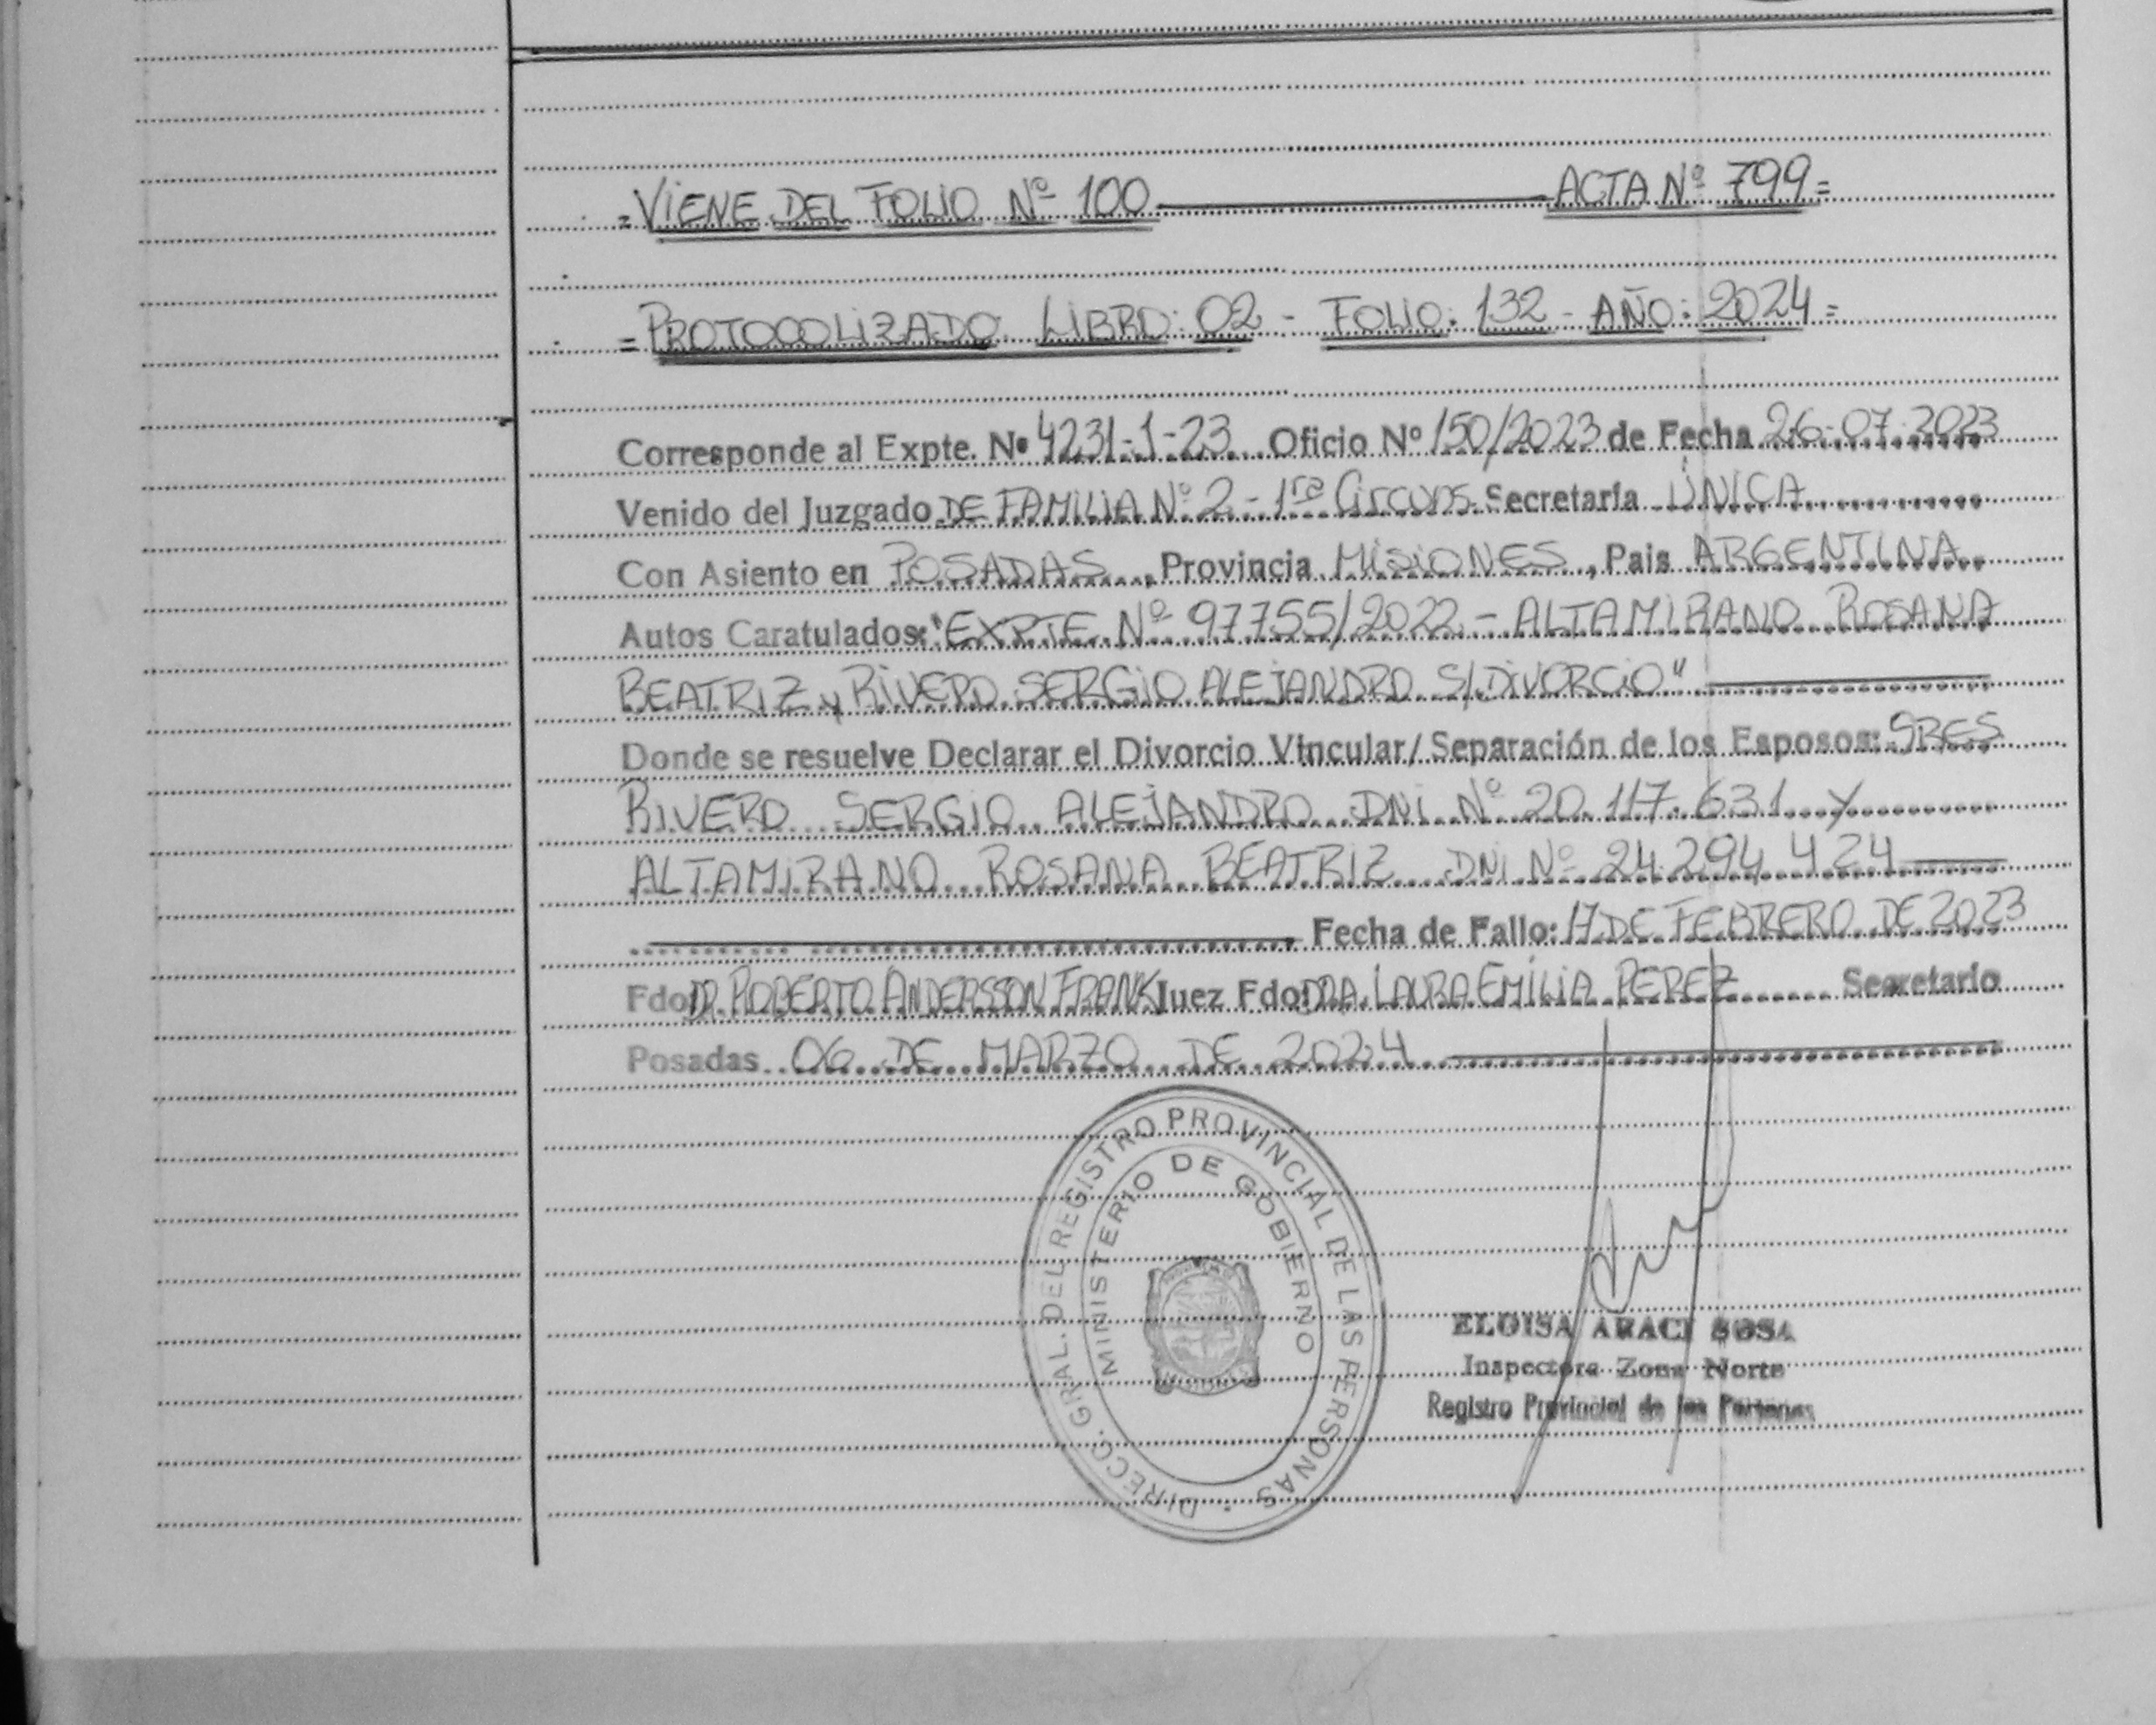 =VIENE DEL FOLIO Nº 100 ACTA Nº 799=
=PROTOCOLIZADO LIBRO: 02 - FOLIO: 132 - AÑO: 2024=
Corresponde al Expte. Nº 4231-1-23 Oficio Nº 150/2023 de Fecha 26-07-2023
Venido del Juzgado DE FAMILIA Nº 2 - 1ra Circuns. Secretaría ÚNICA
Con Asiento en POSADAS, Provincia MISIONES, Pais ARGENTINA.
Autos Caratulados: "EXPTE Nº 97755/2022 - ALTAMIRANO ROSANA
BEATRIZ y RIVERO SERGIO ALEJANDRO S/DIVORCIO"
Donde se resuelve Declarar el Divorcio Vincular/Separación de los Esposos: SRES
RIVERO SERGIO ALEJANDRO DNI Nº 20.117.631 y
ALTAMIRANO ROSANA BEATRIZ DNI Nº 24.294.424
Fecha de Fallo: 17 DE FEBRERO DE 2023
Fdo: DR. ROBERTO ANDERSSON FRANK Juez Fdo: DRA. LAURA EMILIA PEREZ Secretario
Posadas 06 DE MARZO DE 2024
DIRECC. GRAL. DEL REGISTRO PROVINCIAL DE LAS PERSONAS
MINISTERIO DE GOBIERNO
ELOISA ARACI SOSA
Inspectora Zona Norte
Registro Provincial de las Personas